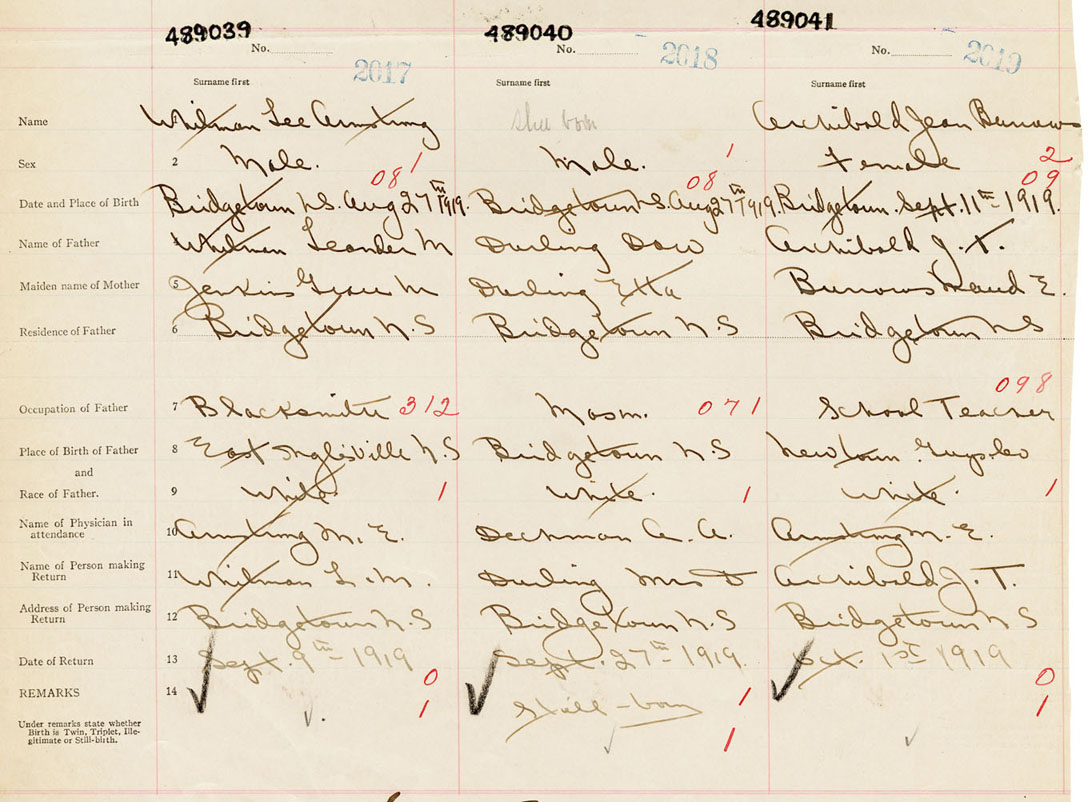 489039 489040 489041
No. No. No.
2017 2018 2019
Surname first Surname first Surname first
Name Whitman Lee Armstrong Archibald Jean Burrows
Sex 2 Male. 1 Male. 1 Female 2
08 08 09
Date and Place of Birth Bridgetown N.S. Aug 27th 1919. Bridgetown N.S. Aug 27th 1919. Bridgetown. Sept. 11th 1919.
Name of Father Whitman Leander M Durling Archibald J. T.
Maiden name of Mother 5 Jenkins Grace M Durling Etta Burrows Maud E.
Residence of Father 6 Bridgetown N.S Bridgetown N.S Bridgetown N S
098
Occupation of Father 7 Blacksmith 312 Mason. 071 School Teacher
Place of Birth of Father 8 East Inglisville N.S Bridgetown N.S Newtown
and
Race of Father. 9 White 1 White. 1 White. 1
Name of Physician in
attendance 10 Armstrong M. E. Deckman A. A. Armstrong M. E.
Name of Person making
Return 11 Whitman L. M. Durling Mrs D Archibald J. T.
Address of Person making
Return 12 Bridgetown N.S Bridgetown N.S Bridgetown N S
Date of Return 13 Sept. 9th 1919 Sept. 27th 1919. Oct. 1st 1919
0 0
REMARKS 14 1 Still-born 1 1
Under remarks state whether
Birth is Twin, Triplet, Ille-
gitimate or Still-birth. 1